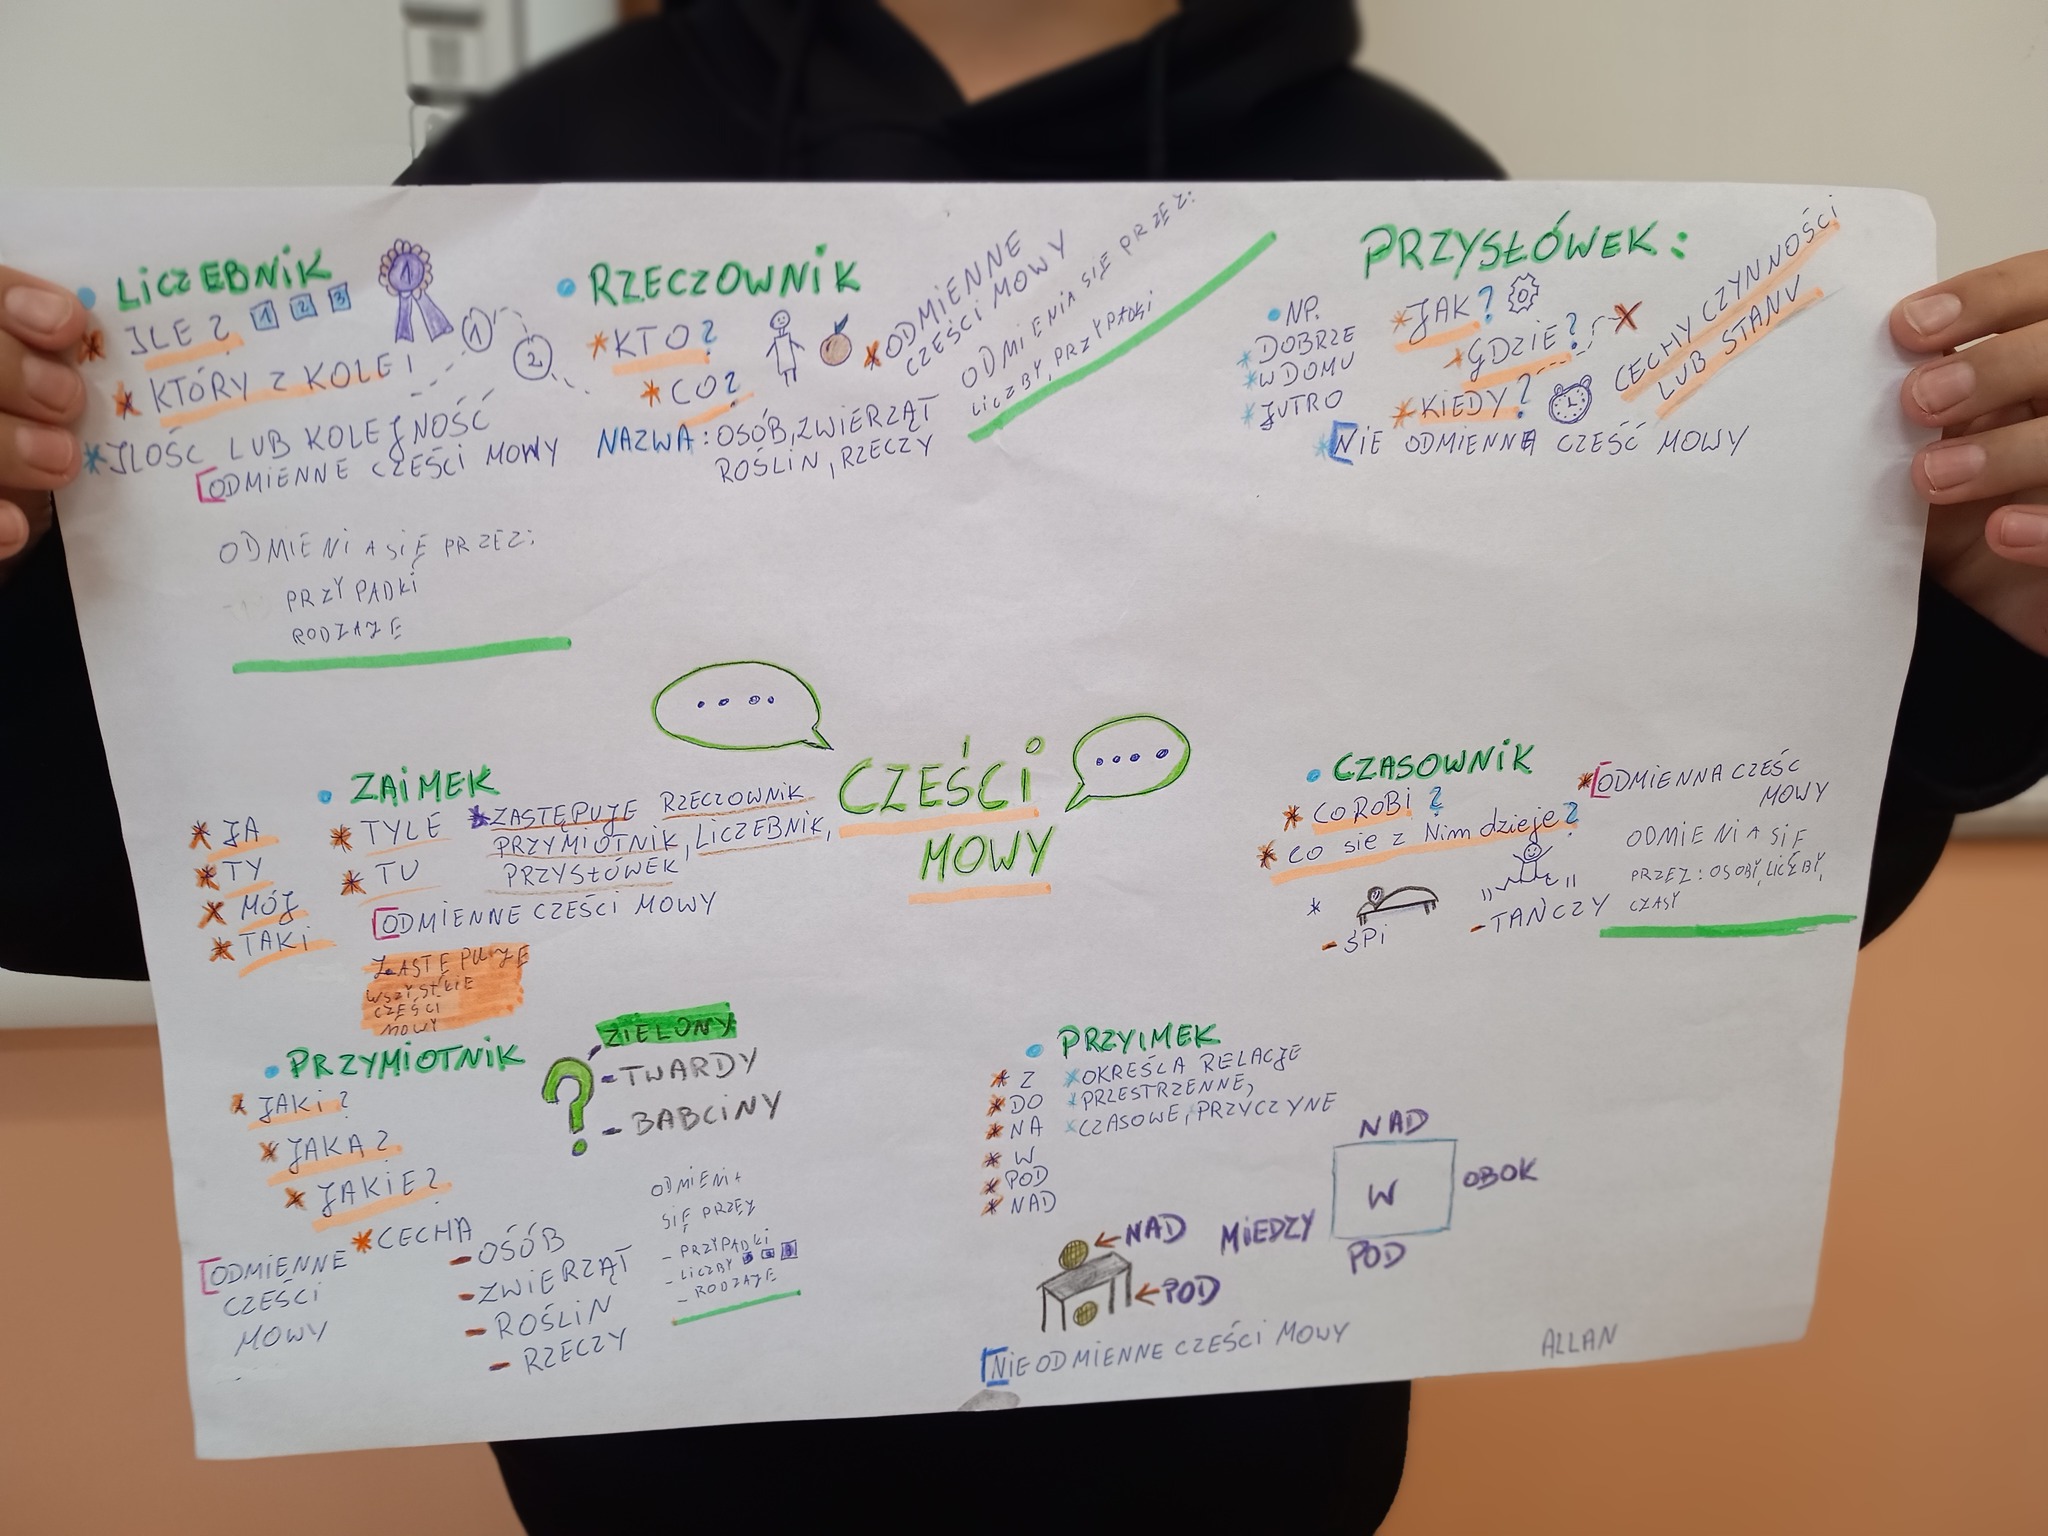 LICZEBNIK
ILE? 1 2 3
1
KTÓRY Z KOLEI
1
2
ILOŚĆ LUB KOLEJNOŚĆ
ODMIENNE CZEŚCI MOWY
ODMIENIA SIĘ PRZEZ:
PRZYPADKI
RODZAJE
RZECZOWNIK
KTO?
CO?
NAZWA: OSÓB, ZWIERZĄT
ROŚLIN, RZECZY
ODMIENNE
CZEŚCI MOWY
ODMIENIA SIĘ PRZEZ:
LICZBY, PRZYPADKI
PRZYSŁÓWEK:
NP.
DOBRZE
W DOMU
JUTRO
JAK?
GDZIE?
KIEDY?
CECHY CZYNNOŚCI
LUB STANU
NIE ODMIENNA CZEŚĆ MOWY
CZEŚCI
MOWY
ZAIMEK
JA
TY
MÓJ
TAKI
TYLE
TU
ZASTĘPUJE RZECZOWNIK
PRZYMIOTNIK, LICZEBNIK,
PRZYSŁÓWEK
ODMIENNE CZEŚCI MOWY
ZASTĘPUJE
WSZYSTKIE
CZEŚCI
MOWY
CZASOWNIK
CO ROBI?
Co sie z Nim dzieje?
- ŚPI
- TAŃCZY
ODMIENNA CZEŚĆ
MOWY
ODMIENIA SIĘ
PRZEZ: OSOBY, LICZBY,
CZASY
PRZYMIOTNIK
JAKI?
JAKA?
JAKIE?
CECHA
- OSÓB
- ZWIERZĄT
- ROŚLIN
- RZECZY
ODMIENNE
CZEŚCI
MOWY
?
- ZIELONY
- TWARDY
- BABCINY
ODMIENIA
SIĘ PRZEZ
- PRZYPADKI
- LICZBY
- RODZAJE
PRZYIMEK
Z
DO
NA
W
POD
NAD
OKREŚLA RELACJE
PRZESTRZENNE,
CZASOWE, PRZYCZYNE
NAD
POD
MIEDZY
NAD
W
OBOK
POD
NIEODMIENNE CZEŚCI MOWY
ALLAN